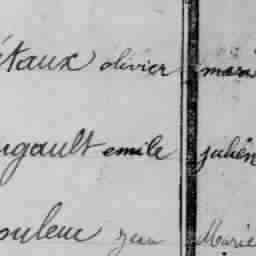 étaux olivier mari
ugault emile julien
ouleuc jean Marie